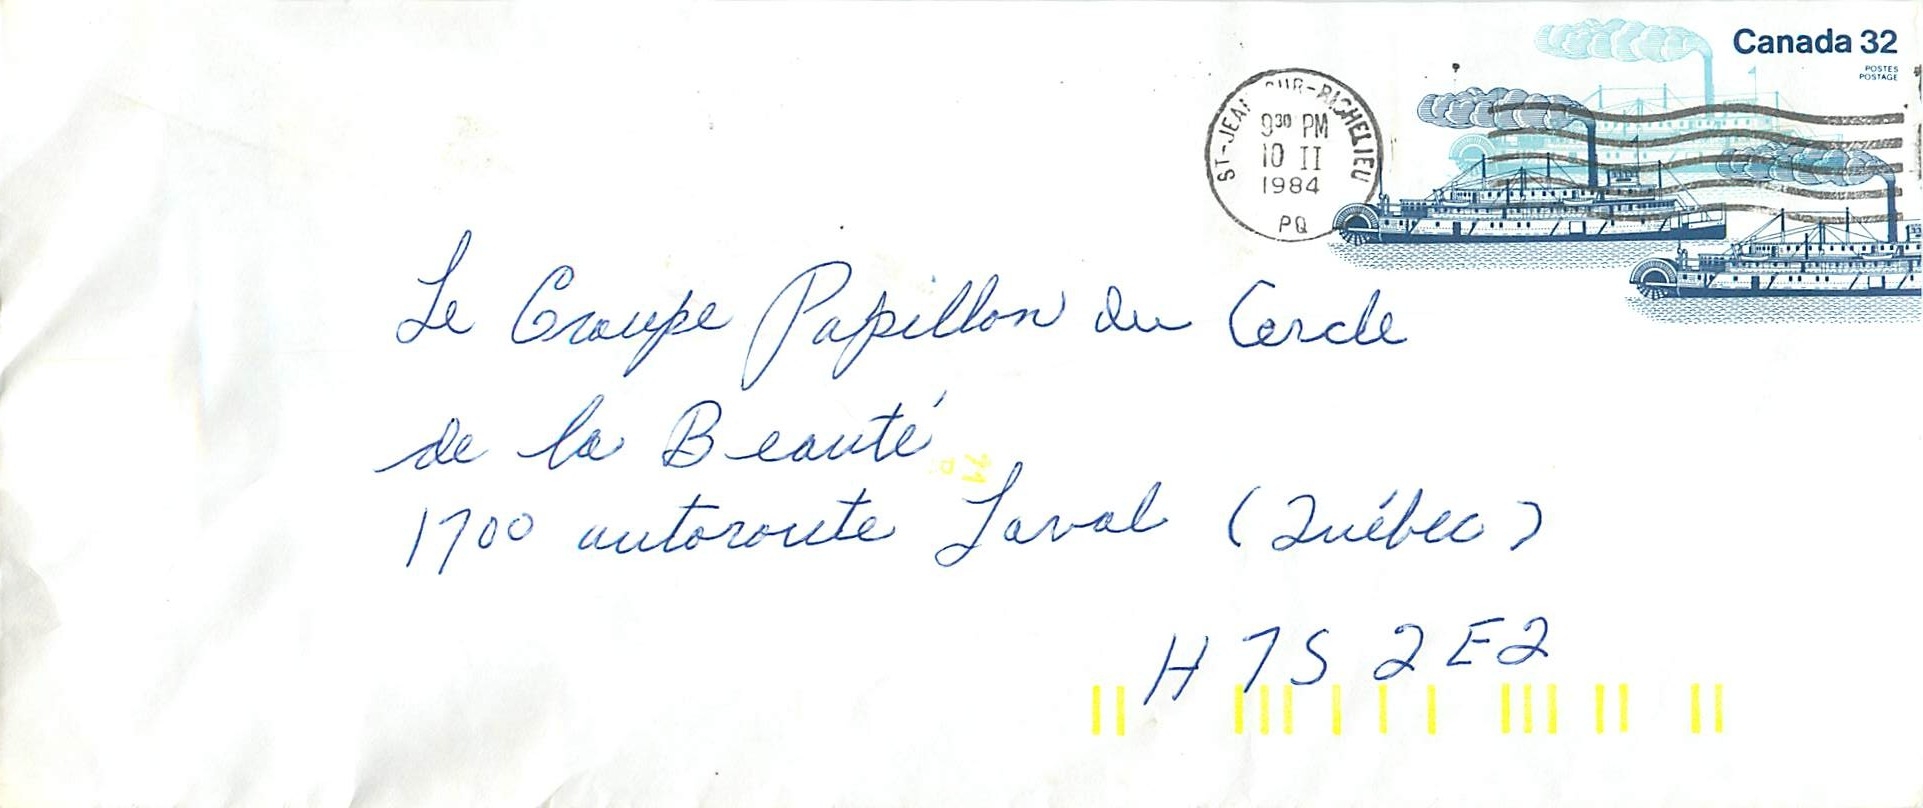 Canada 32
POSTES
POSTAGE
ST-JEAN-SUR-RICHELIEU
9³⁰ PM
10 II
1984
PQ
Le Groupe Papillon du Cercle
de la Beauté
1700 autoroute Laval (Québec)
H7S 2E2